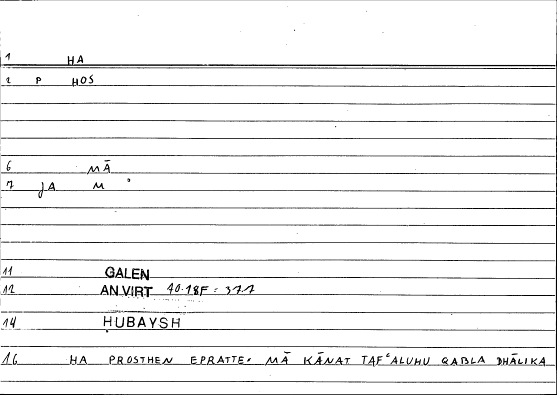 1 HA
2 P HOS
6 MĀ
7 JA M °
11 GALEN
12 AN.VIRT 40.18F = 377
14 ḤUBAYSH
16 HA PROSTHEN EPRATTE· MĀ KĀNAT TAFʿALUHU QABLA DHĀLIKA